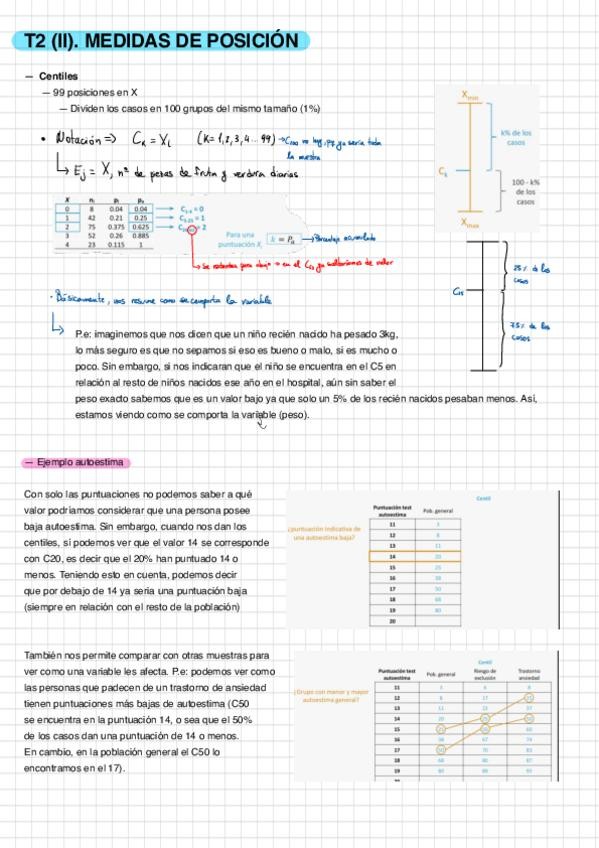 T2 (II). MEDIDAS DE POSICIÓN
— Centiles
— 99 posiciones en X
— Dividen los casos en 100 grupos del mismo tamaño (1%)
• Notación => Cₖ = Xᵢ (K = 1, 2, 3, 4... 99) → C₁₀₀ no hay, pq ya sería toda
la muestra
↳ Ej = X, nº de piezas de fruta y verdura diarias
Xmin
k% de los
casos
Cₖ
100 - k%
de los
casos
Xmax
X nᵢ pᵢ pₐ
0 8 0.04 0.04
1 42 0.21 0.25
2 75 0.375 0.625
3 52 0.26 0.885
4 23 0.115 1
C₁₋₄ = 0
C₅₋₂₅ = 1
= 2
Para una
puntuación Xᵢ
k = Pₐ → Porcentaje acumulado
25% de los
casos
C₂₅
75% de los
casos
• Básicamente, nos resume como se comporta la variable
P.e: imaginemos que nos dicen que un niño recién nacido ha pesado 3kg,
lo más seguro es que no sepamos si eso es bueno o malo, si es mucho o
poco. Sin embargo, si nos indicaran que el niño se encuentra en el C5 en
relación al resto de niños nacidos ese año en el hospital, aún sin saber el
peso exacto sabemos que es un valor bajo ya que solo un 5% de los recién nacidos pesaban menos. Así,
estamos viendo como se comporta la variable (peso).
— Ejemplo autoestima
Con solo las puntuaciones no podemos saber a qué
valor podríamos considerar que una persona posee
baja autoestima. Sin embargo, cuando nos dan los
centiles, sí podemos ver que el valor 14 se corresponde
con C20, es decir que el 20% han puntuado 14 o
menos. Teniendo esto en cuenta, podemos decir
que por debajo de 14 ya seria una puntuación baja
(siempre en relación con el resto de la población)
¿puntuación indicativa de
una autoestima baja?
Centil
Puntuación test
autoestima
Pob. general
11 3
12 8
13 11
14 20
15 25
16 38
17 50
18 68
19 80
20
También nos permite comparar con otras muestras para
ver como una variable les afecta. P.e: podemos ver como
las personas que padecen de un trastorno de ansiedad
tienen puntuaciones más bajas de autoestima (C50
se encuentra en la puntuación 14, o sea que el 50%
de los casos dan una puntuación de 14 o menos.
En cambio, en la población general el C50 lo
encontramos en el 17).
¿Grupo con menor y mayor
autoestima general?
Centil
Puntuación test
autoestima
Pob. general
Riesgo de
exclusión
Trastorno
ansiedad
11 3
12 8 17 25
13 11
14 20 25 50
15 25
16 38 67
17 50
18 68 80
19 80